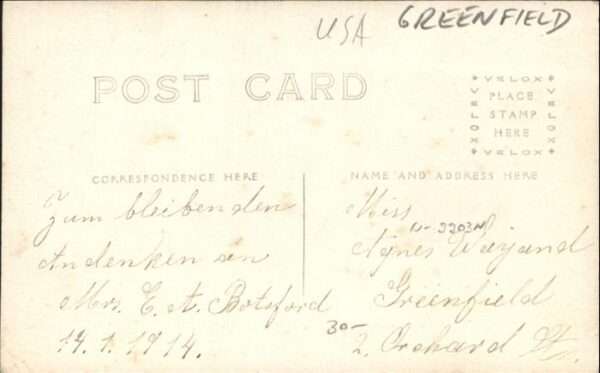 USA GREENFIELD
POST CARD
VELOX
PLACE
STAMP
HERE
VELOX
VELOX
VELOX
CORRESPONDENCE HERE
NAME AND ADDRESS HERE
Zum bleibenden
Andenken an
Mrs. E. A. Botsford
14.1.1914.
Miss
Agnes Weyand
Greenfield
30-
2. Orchard St.